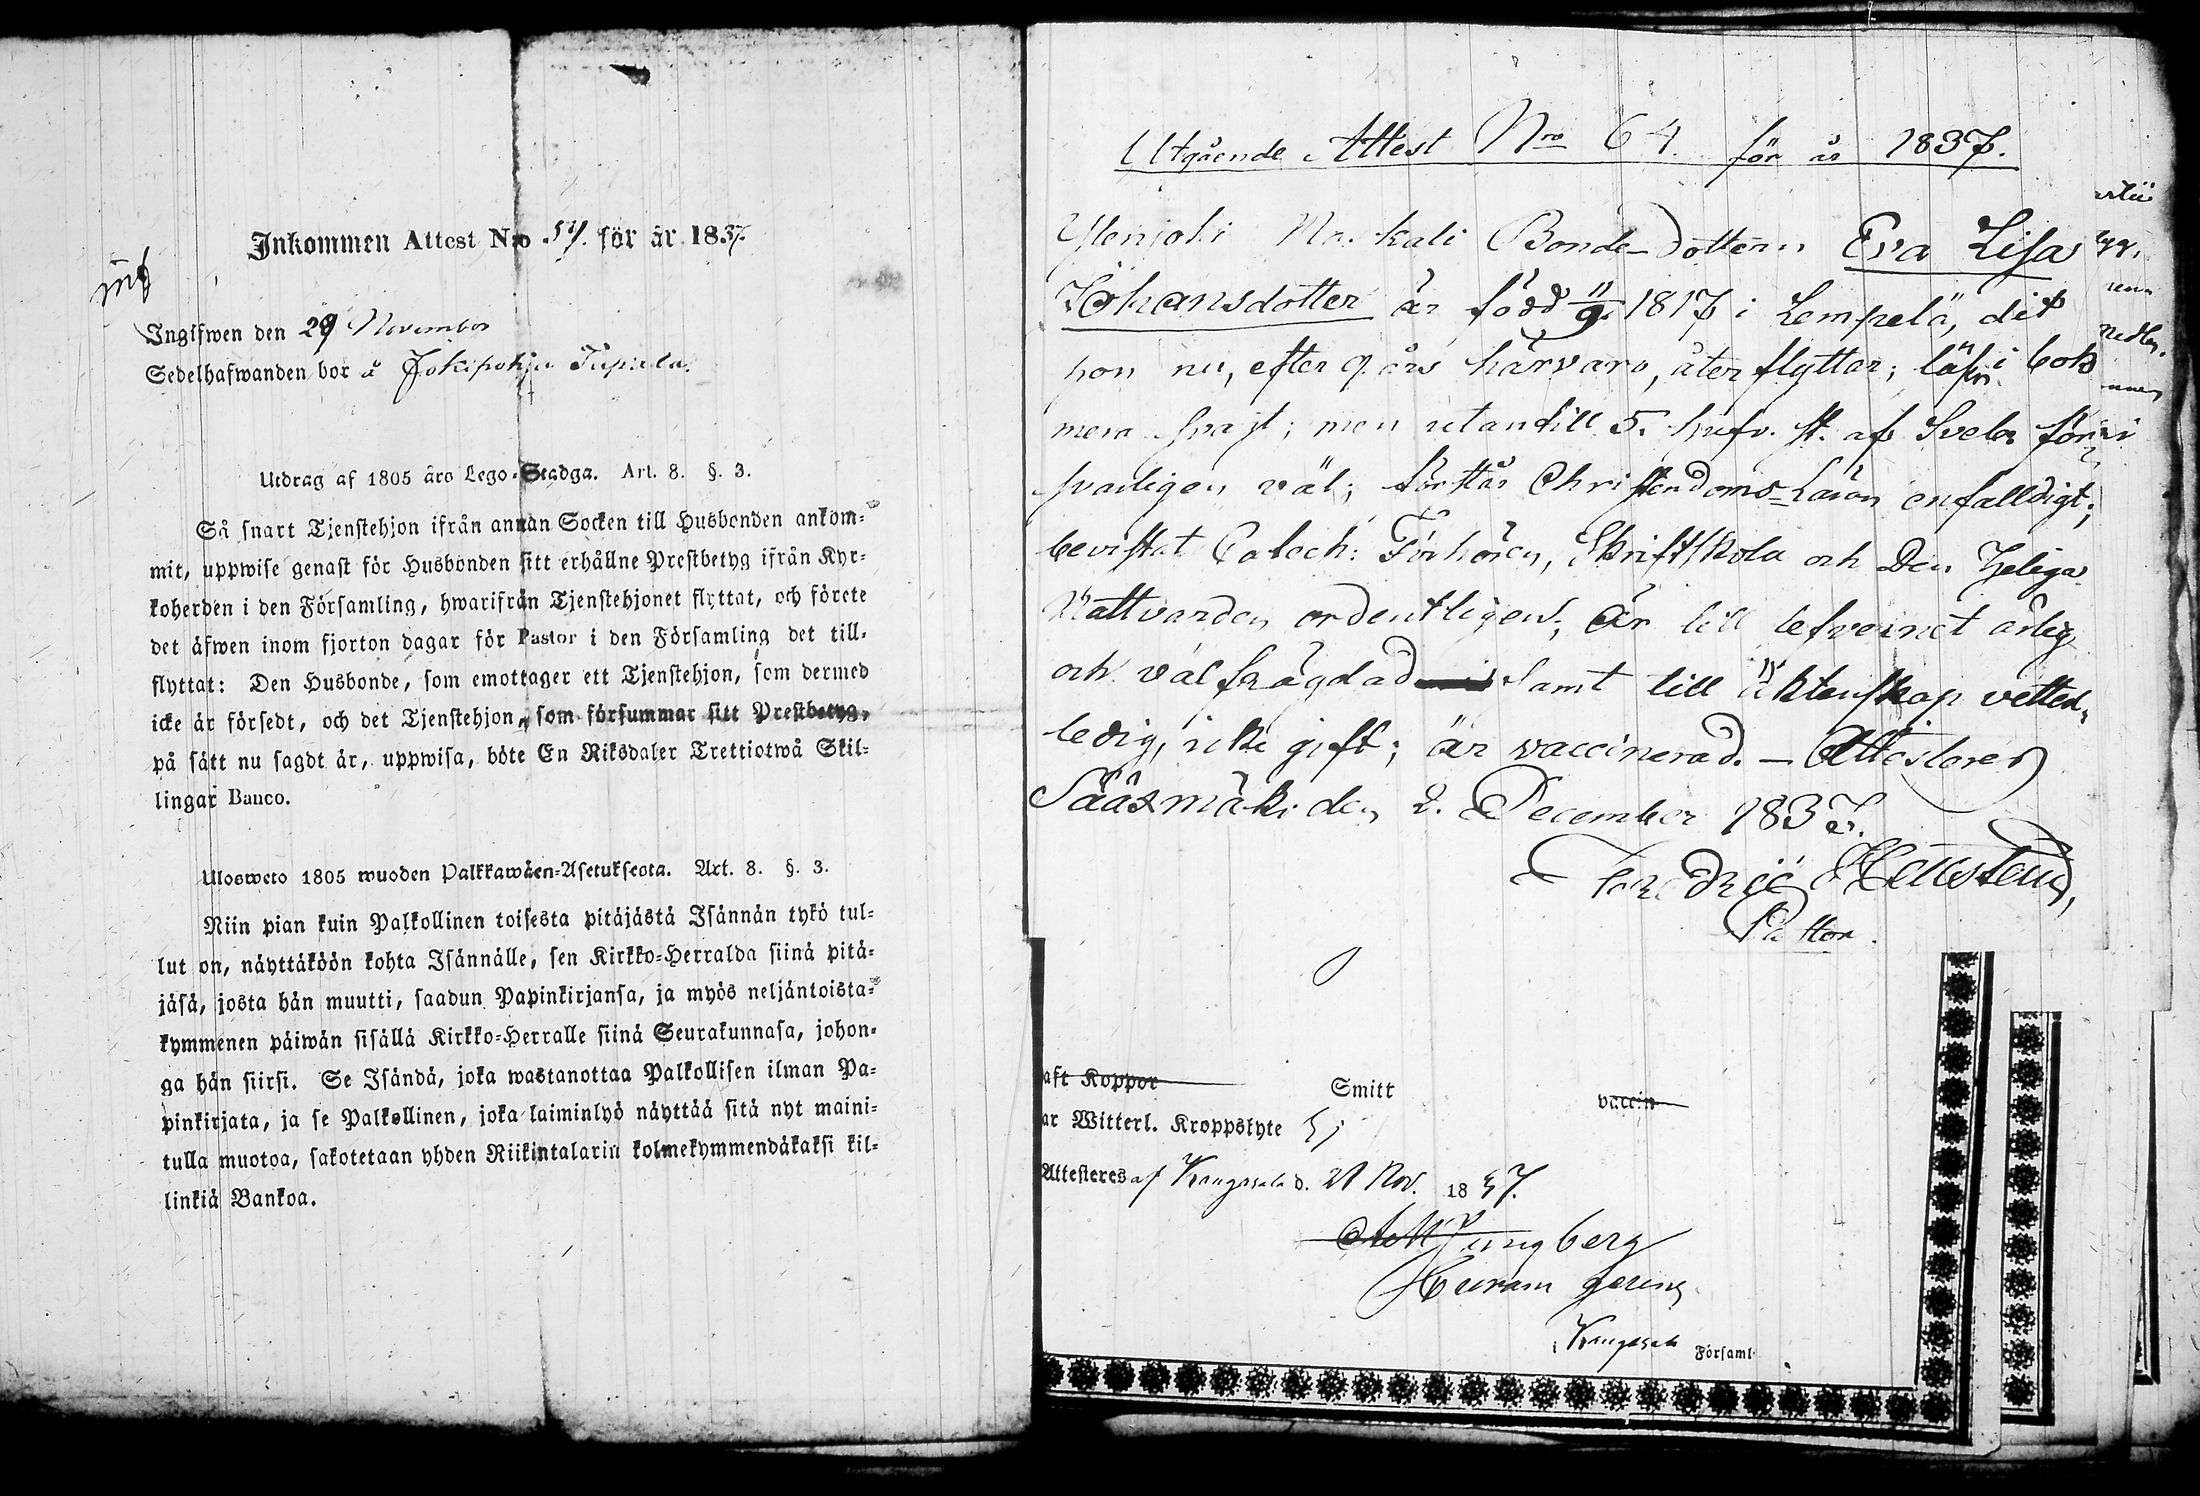 Inkommen Attest N:o 54. för år 1837.
Ingifwen den 29 November
Sedelhafwanden bor å Jokipohja
Utdrag af 1805 års Lego-Stadga. Art. 8. §. 3.
Så snart Tjenstehjon ifrån annan Socken till Husbonden ankom-
mit, uppwise genast för Husbonden sitt erhållne Prestbetyg ifrån Kyr-
koherden i den Församling, hwarifrån Tjenstehjonet flyttat, och förete
det äfwen inom fjorton dagar för Pastor i den Församling det till-
flyttat: Den Husbonde, som emottager ett Tjenstehjon, som dermed
icke är försedt, och det Tjenstehjon, som försummar sitt Prestbetyg,
på sätt nu sagdt är, uppwisa, böte En Riksdaler Trettiotwå Skil-
lingar Banco.
Ulosweto 1805 wuoden Palkkawäen-Asetuksesta. Art. 8. §. 3.
Niin pian kuin Palkollinen toisesta pitäjästä Isännän tykö tul-
lut on, näyttäköön kohta Isännälle, sen Kirkko-Herralda siinä pitä-
jäsä, josta hän muutti, saadun Papinkirjansa, ja myös neljäntoista-
kymmenen päiwän sisällä Kirkko-Herralle siinä Seurakunnasa, johon-
ga hän siirsi. Se Isändä, joka wastanottaa Palkollisen ilman Pa-
pinkirjata, ja se Palkollinen, joka laiminlyö näyttää sitä nyt maini-
tulla muotoa, sakotetaan yhden Riikintalarin kolmekymmendäkaksi kil-
linkiä Bankoa.
Utgående Attest Nro 64. för år 1837.
Bonde-Dottern Eva Lisa
Johansdotter är född 11/9 1817 i Lempelä, dit
hon nu, efter 9 års härvaro, åter flyttar; läser i bok
mera svagt; men utantill 5. hufv. st. af Svebe. för-
svarligen väl; förstår Christendoms-Läran enfalldigt;
bevistat Catech: Förhören, Skriftskola och Den Heliga
Nattvarden ordentligen; är till lefvernet ärlig
och välfrägdad samt till äktenskap vetterl.
ledig, icke gift; är vaccinerad. — Attesterer
Sääxmäki den 2. December 1837.
Fredric Hellsten,
Pastor.
aft Koppor Smitt vaccin
ar Witterl. Kroppslyte Ej
Attesteres af Kangasala d. 21 Nov. 1837.
Ljungberg
i Kangasala Församl.